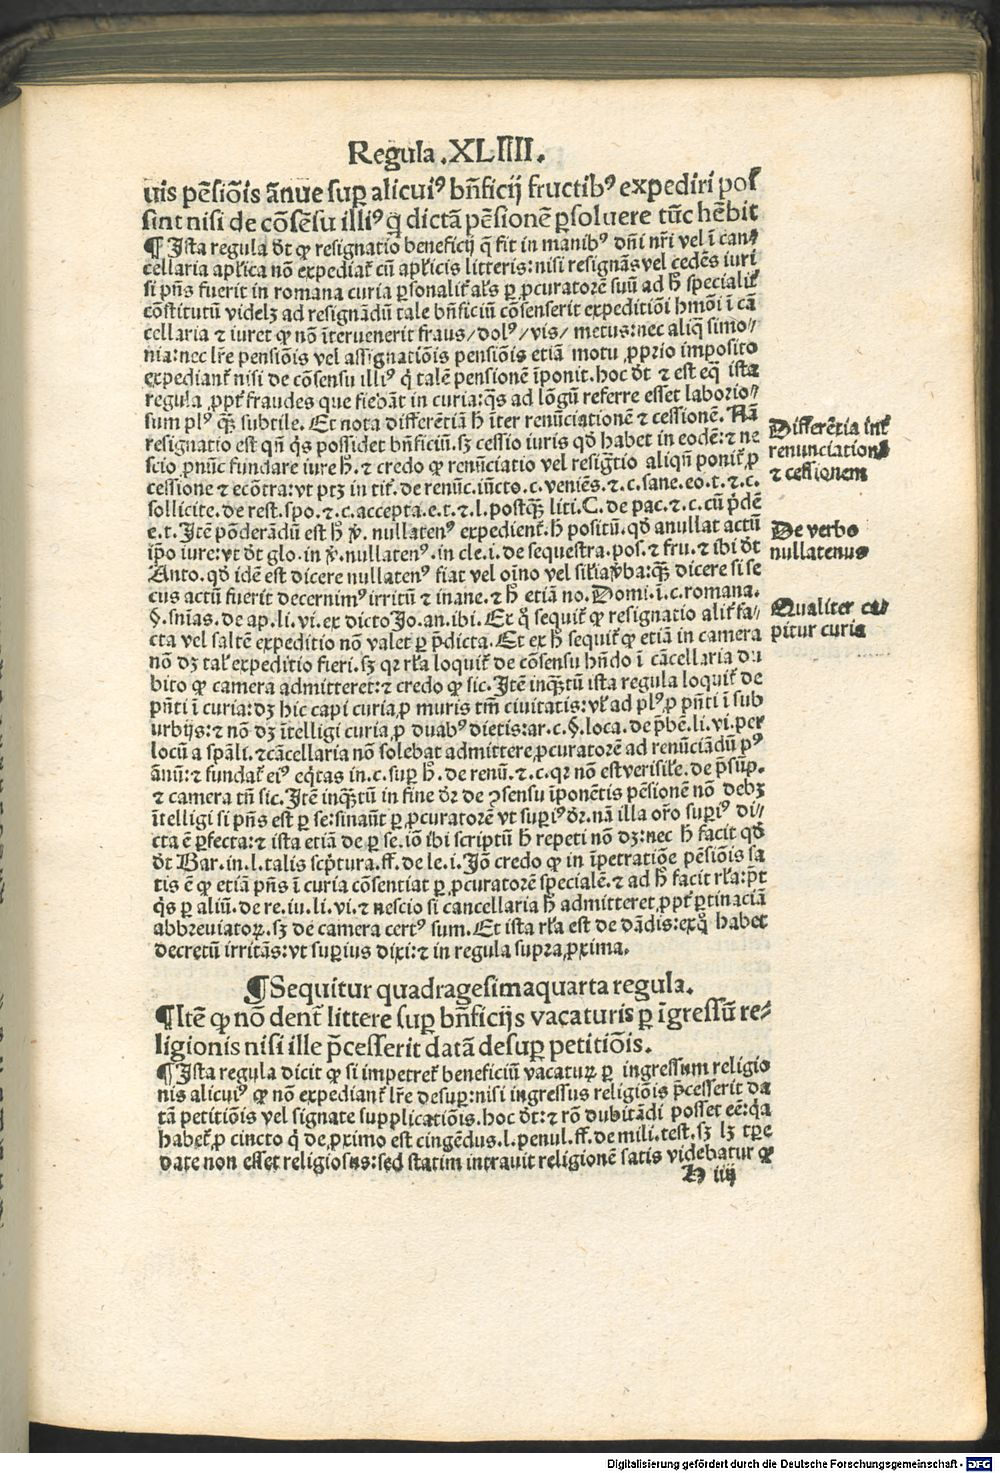 Regula .XLIIII.
uis pēsiōis ānue sup̲ alicui⁹ bn̄ficij fructib⁹ expediri pos
sint nisi de cōsēsu illi⁹ q̄ dictā pēsionē p̲soluere tūc hēbit
¶ Ista regula d̄t ꝙ resignatio beneficij q̄ fit in manib⁹ dn̄i nr̄i vel ī can⸗
cellaria apl̄ica nō expediat̄ cū apl̄icis litteris: nisi resignās vel cedēs iuri
si pn̄s fuerit in romana curia p̲sonalit̄ al̄s p̲ ꝓcuratorē suū ad h̄ specialit̄
cōstitutū videlꝫ ad resignādū tale bn̄ficiū cōsenserit expeditiōi hmōi ī cā
cellaria ⁊ iuret ꝙ nō īteruenerit fraus/dol⁹/vis/ metus: nec aliq̄ simo⸗
nia: nec lr̄e pensiōis vel assignatiōis pensiōis etiā motu ꝓprio imposito
expediant̄ nisi de cōsensu illi⁹ q̄ talē pensionē īponit. hoc d̄t ⁊ est eq̄ ista
regula ꝓpt̄ fraudes que fiebāt in curia: q̄s ad lōgū referre esset laborio⸗
sum pl⁹ qꝫ̄ subtile. Et nota differētiā h̄ īter renūciationē ⁊ cessionē. Nā
resignatio est qn̄ q̄s possidet bn̄ficiū. sꝫ cessio iuris qd̄ habet in eodē: ⁊ ne
scio ꝓnūc fundare iure h̄. ⁊ credo ꝙ renūciatio vel resigt̄io aliqn̄ ponit̄ p̲
cessione ⁊ ecōtra: vt ptꝫ in tit̄. de renūc. iūcto. c. veniēs. ⁊. c. sane. eo. t. ⁊. c.
sollicite. de rest. spo. ⁊. c. accepta. e. t. ⁊. l. postqꝫ̄ liti. C. de pac. ⁊. c. cū p̄dē
e. t. Itē pōderādū est h̄ v̄. nullaten⁹ expedient̄. h̄ positū. qd̄ anullat actū
ip̄o iure: vt d̄t glo. in v̄. nullaten⁹. in cle. i. de sequestra. pos. ⁊ fru. ⁊ ibi d̄t
Anto. qd̄ idē est dicere nullaten⁹ fiat vel oīno vel sil̄ia v̄ba: qꝫ̄ dicere si se
cus actū fuerit decernim⁹ irritū ⁊ inane. ⁊ h̄ etiā no. Domi. ī. c. romana.
§. sn̄ias. de ap. li. vi. ex dicto Jo. an. ibi. Ex q̊ sequit̄ ꝙ resignatio alit̄ fa⸗
cta vel saltē expeditio nō valet p̲ p̄dicta. Et ex h̄ sequit̄ ꝙ etiā in camera
nō dꝫ tal̄ expeditio fieri. sꝫ qr rl̄a loquit̄ de cōsensu hn̄do ī cācellaria du
bito ꝙ camera admitteret: ⁊ credo ꝙ sic. Itē inqꝫ̄tū ista regula loquit̄ de
pn̄ti ī curia: dꝫ hic capi curia ꝓ muris tm̄ ciuitatis: vl̄ ad pl⁹ ꝓ pn̄ti ī sub
urbijs: ⁊ nō dꝫ ītelligi curia ꝓ duab⁹ dietis: ar. c. §. loca. de p̄bē. li. vi. per
locū a spāli. ⁊ cācellaria nō solebat admittere ꝓcuratorē ad renūciādū p⁹
ānū: ⁊ fundat̄ ei⁹ eq̄tas in. c. sup̲ h̄. de renū. ⁊. c. qr nō est verisil̄e. de p̄sūp.
⁊ camera tn̄ sic. Itē inqꝫ̄tū in fine d̄r de ꝯsensu īponētis pēsionē nō debꝫ
ītelligi si pn̄s est p̲ se: sinaūt p̲ ꝓcuratorē vt supi⁹ d̄r. nā illa or̄o supi⁹ di⸗
cta ē p̲fecta: ⁊ ista etiā de p̲ se. iō ibi scriptū h̄ repeti nō dꝫ: nec h̄ facit qd̄
d̄t Bar. in. l. talis scp̄tura. ff. de le. i. Iō credo ꝙ in īpetratiōe pēsiōis sa
tis ē ꝙ etiā pn̄s ī curia cōsentiat p̲ ꝓcuratorē specialē. ⁊ ad h̄ facit rl̄a: p̄t
q̄s p̲ aliū. de re. iu. li. vi. ⁊ nescio si cancellaria h̄ admitteret ꝓpt̄ p̲tinaciā
abbreuiatoꝝ. sꝫ de camera cert⁹ sum. Et ista rl̄a est de dādis: ex q̊ habet
decretū irritās: vt superius dixi: ⁊ in regula supra ꝓxima.
¶ Sequitur quadragesimaquarta regula.
¶ Itē ꝙ nō dent̄ littere sup̲ bn̄ficijs vacaturis p̲ īgressū re⸗
ligionis nisi ille p̄cesserit datā desup̲ petitiōis.
¶ Ista regula dicit ꝙ si impetret̄ beneficiū vacatuꝝ p̲ ingressum religio
nis alicui⁹ ꝙ nō expediant̄ lr̄e desup̲: nisi ingressus religiōis p̄cesserit da
tā petitiōis vel signate supplicatiōis. hoc d̄t: ⁊ rō dubitādi posset eē: q̄a
habet̄ ꝓ cincto q̄ de ꝓximo est cingēdus. l. penul. ff. de mili. test. sꝫ lꝫ tp̲e
date non esset religiosus: sed statim intrauit religionē satis videbatur ꝙ
H iiij
Differētia int̄
renunciationē
⁊ cessionem
De verbo
nullatenus
Qualiter ca⸗
pitur curia
Digitalisierung gefördert durch die Deutsche Forschungsgemeinschaft - DFG